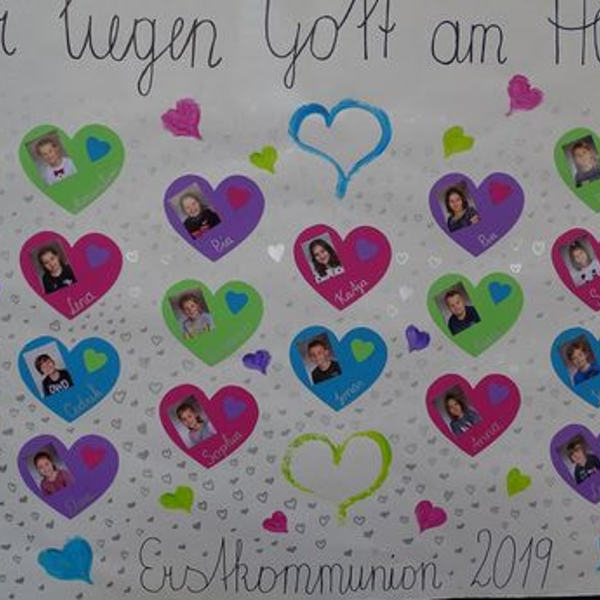 r liegen Gott am H
Pia
Pia
Lina
Katja
Cedrik
Jonas
Sophia
Anna
Erstkommunion 2019